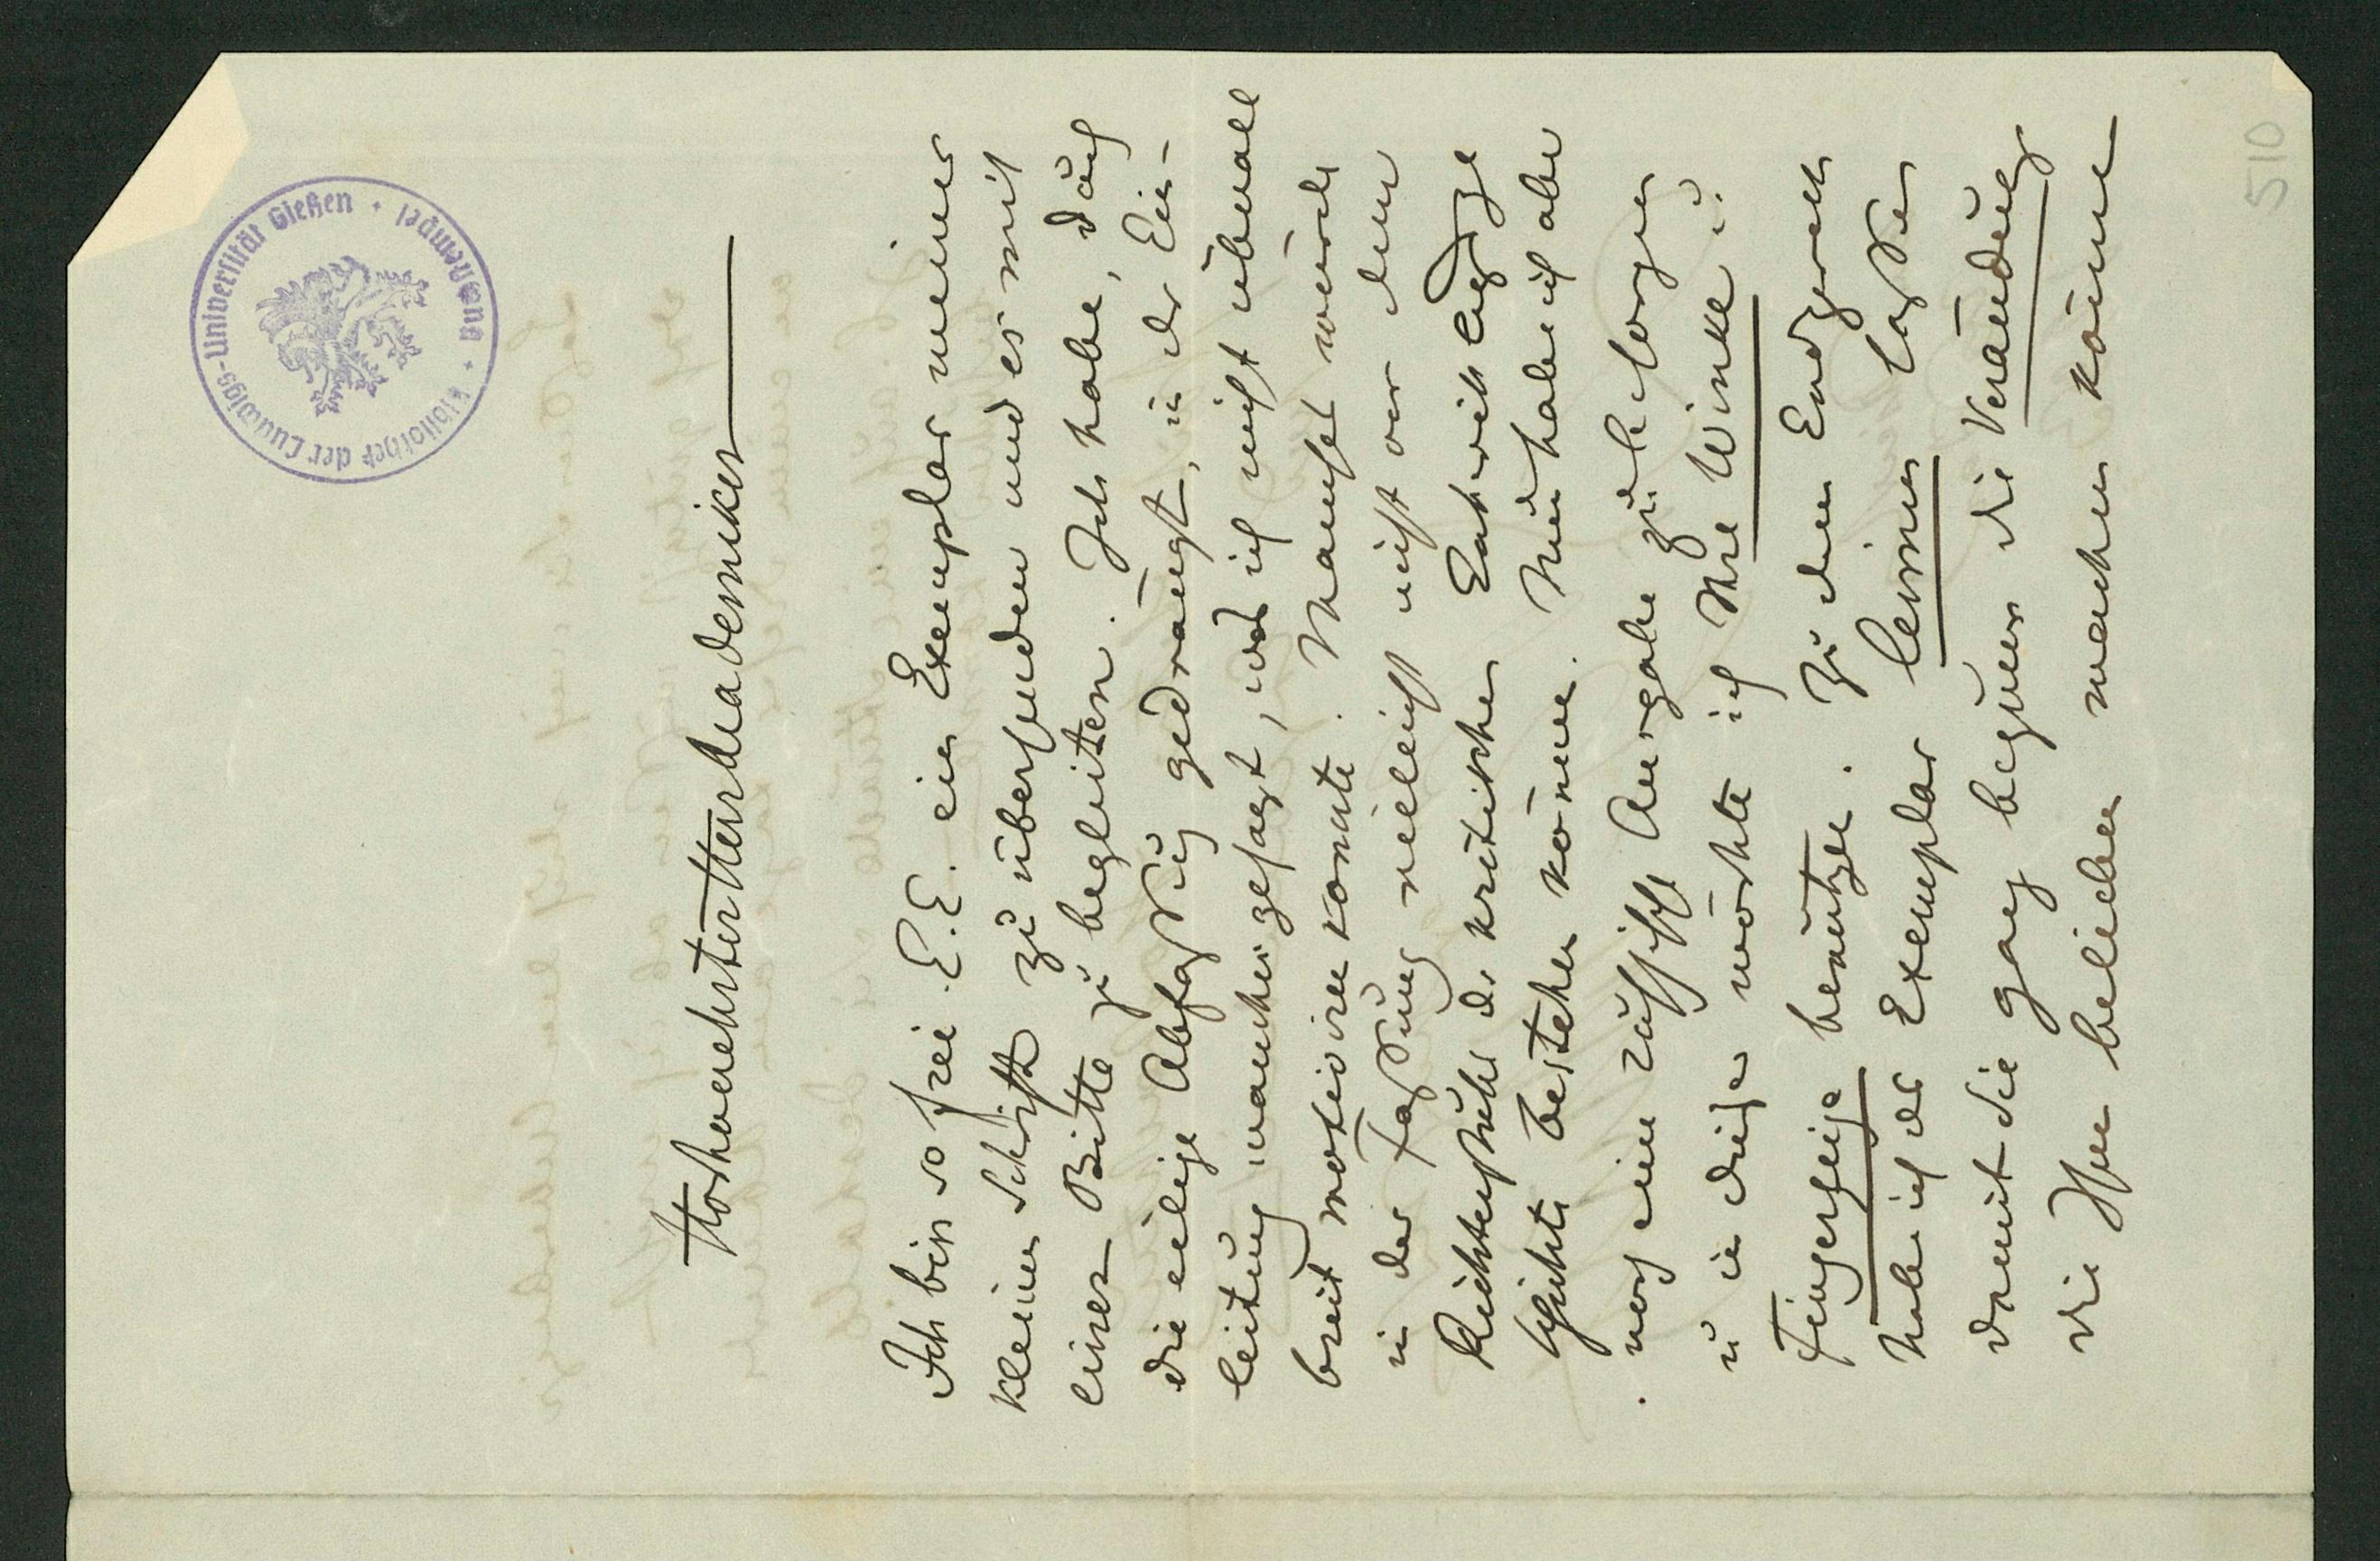 Bibliothek der Ludwigs-Universität Gießen · Handstempel
Hochverehrtester Herr Akademiker
Ich bin so frei E. E. ein Exemplar meiner
kleinen Schrift zu übersenden und es mit
einer Bitte zu begleiten. Ich habe, durch
die eilige Abfassung gedrängt, in der Ein-
leitung manches gesagt, was ich nicht überall
breit motiviren konnte. Manches würde
in der Fassung vielleicht nicht vor dem
Richterstuhl der kritischen
bestehen können. Nun habe ich aber
noch eine Ausgabe zu besorgen
u in dieser möchte ich Ihre Winke u.
Fingerzeige benutzen. Zu dem Endzweck
habe ich das Exemplar leimen lassen
damit Sie ganz bequem die Veränderung
die Ihnen belieben machen können
510